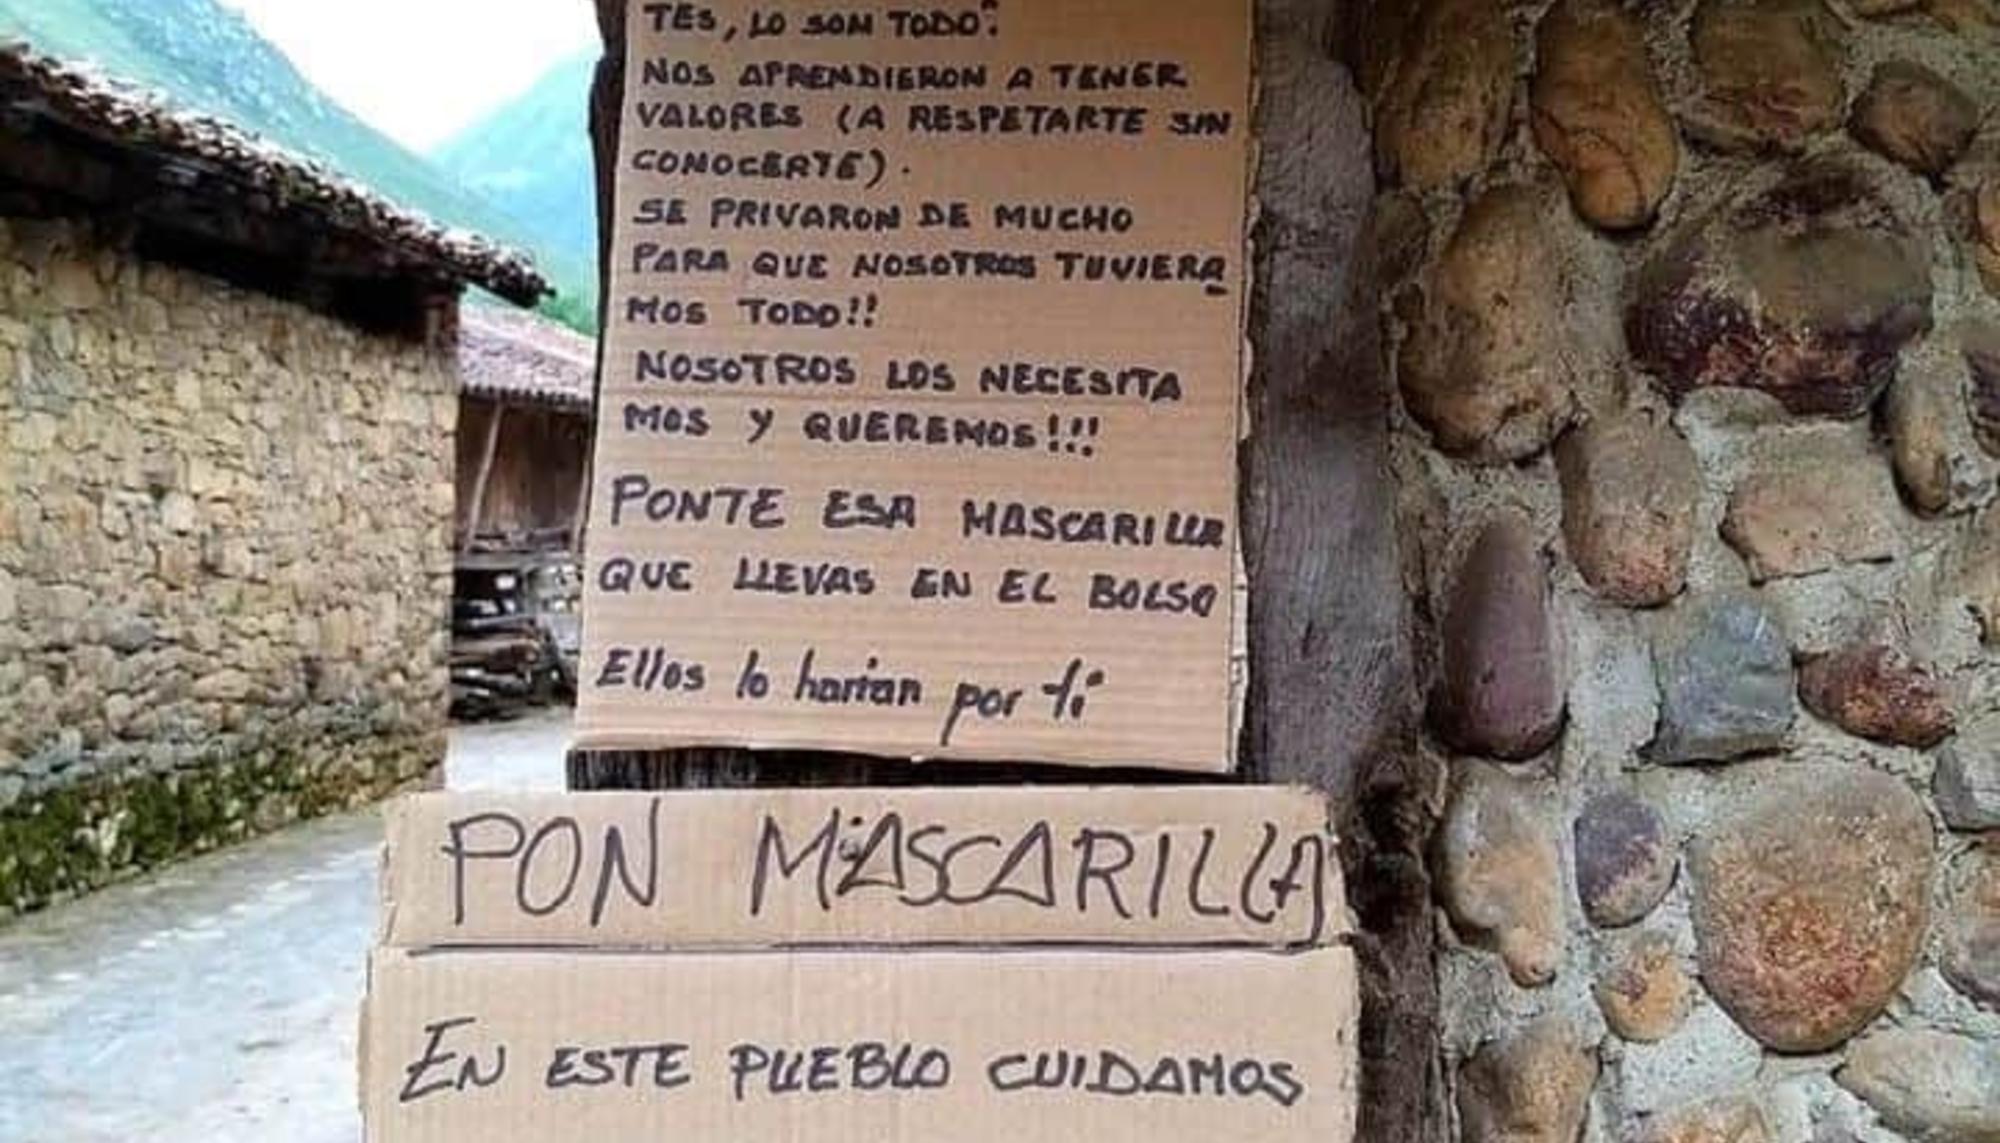 TES, LO SON TODO".
NOS APRENDIERON A TENER
VALORES (A RESPETARTE SIN
CONOCERTE).
SE PRIVARON DE MUCHO
PARA QUE NOSOTROS TUVIERA
MOS TODO!!
NOSOTROS LOS NECESITA
MOS Y QUEREMOS!!!
PONTE ESA MASCARILLA
QUE LLEVAS EN EL BOLSO
Ellos lo harían por ti
PON MASCARILLA
EN ESTE PUEBLO CUIDAMOS